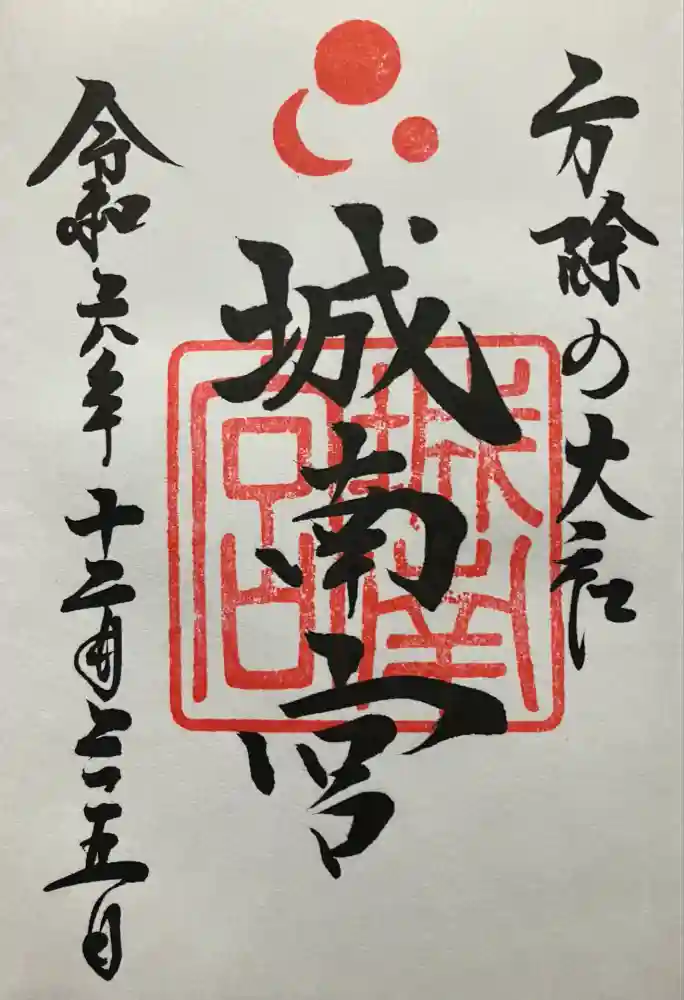 方除の大社
城南宮
城南宮
令和六年十二月二十五日